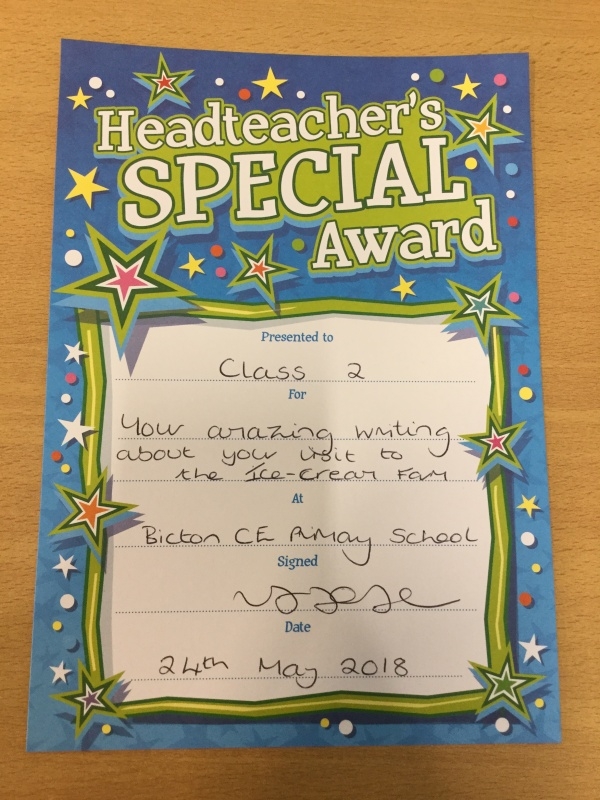 Headteacher's
SPECIAL
Award
Presented to
Class 2
For
Your amazing writing
about your visit to
the Ice-cream Farm
At
Bicton CE Primary School
Signed
Date
24th May 2018